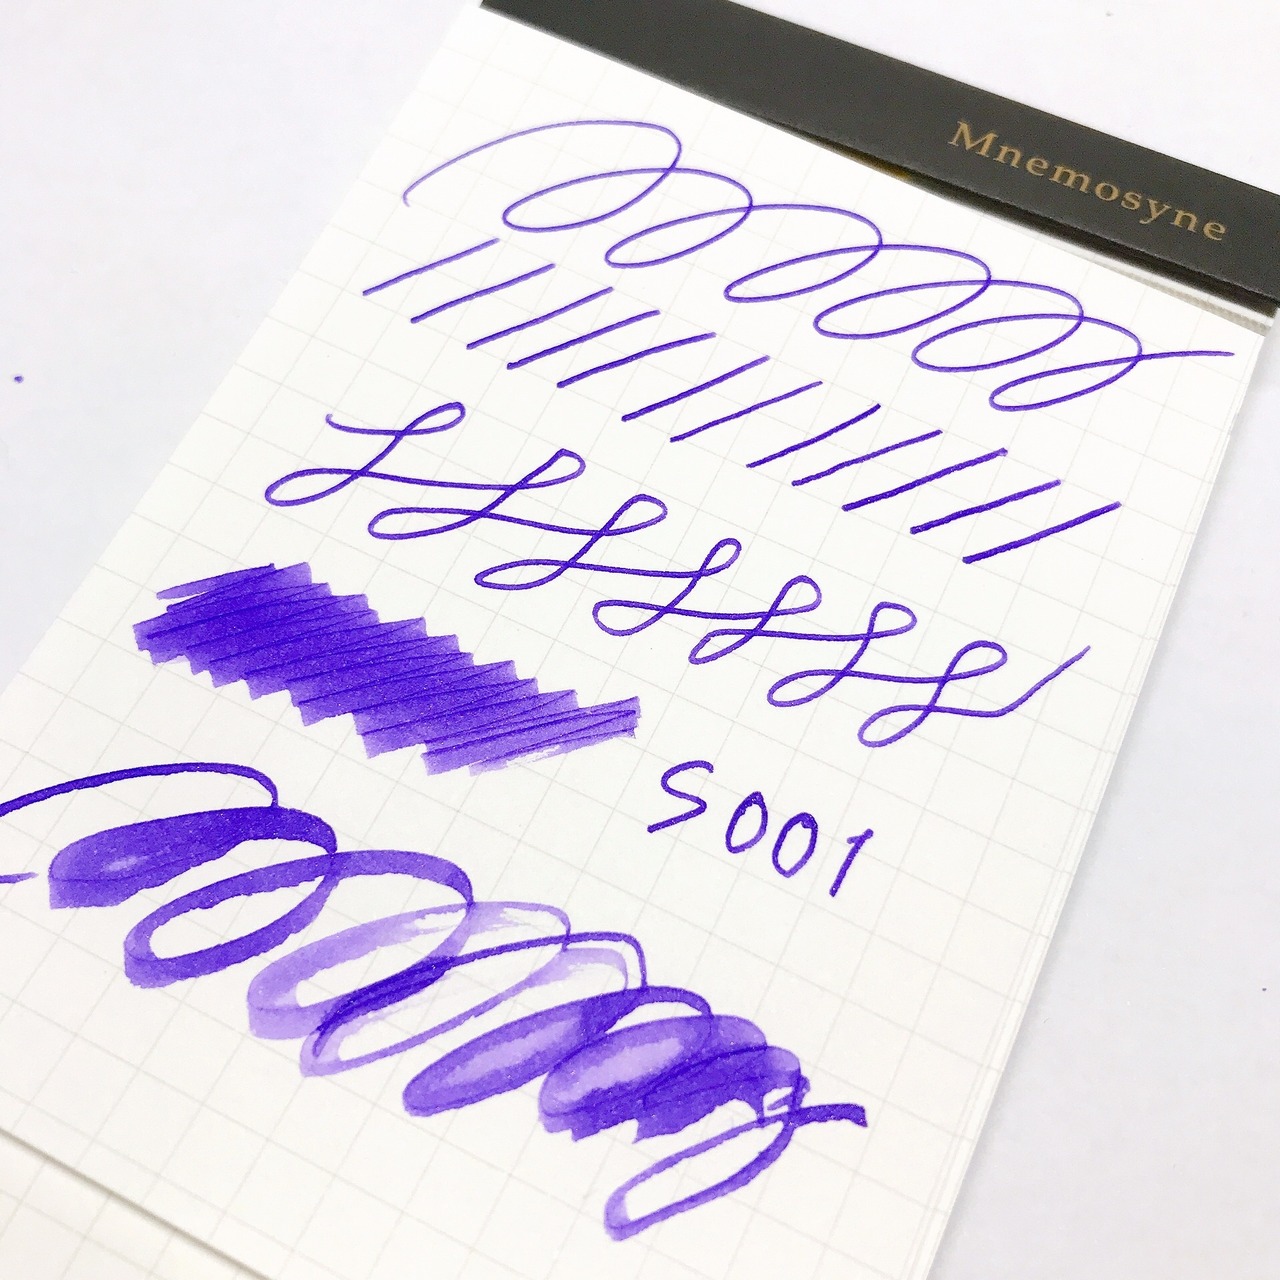 Mnemosyne
S001